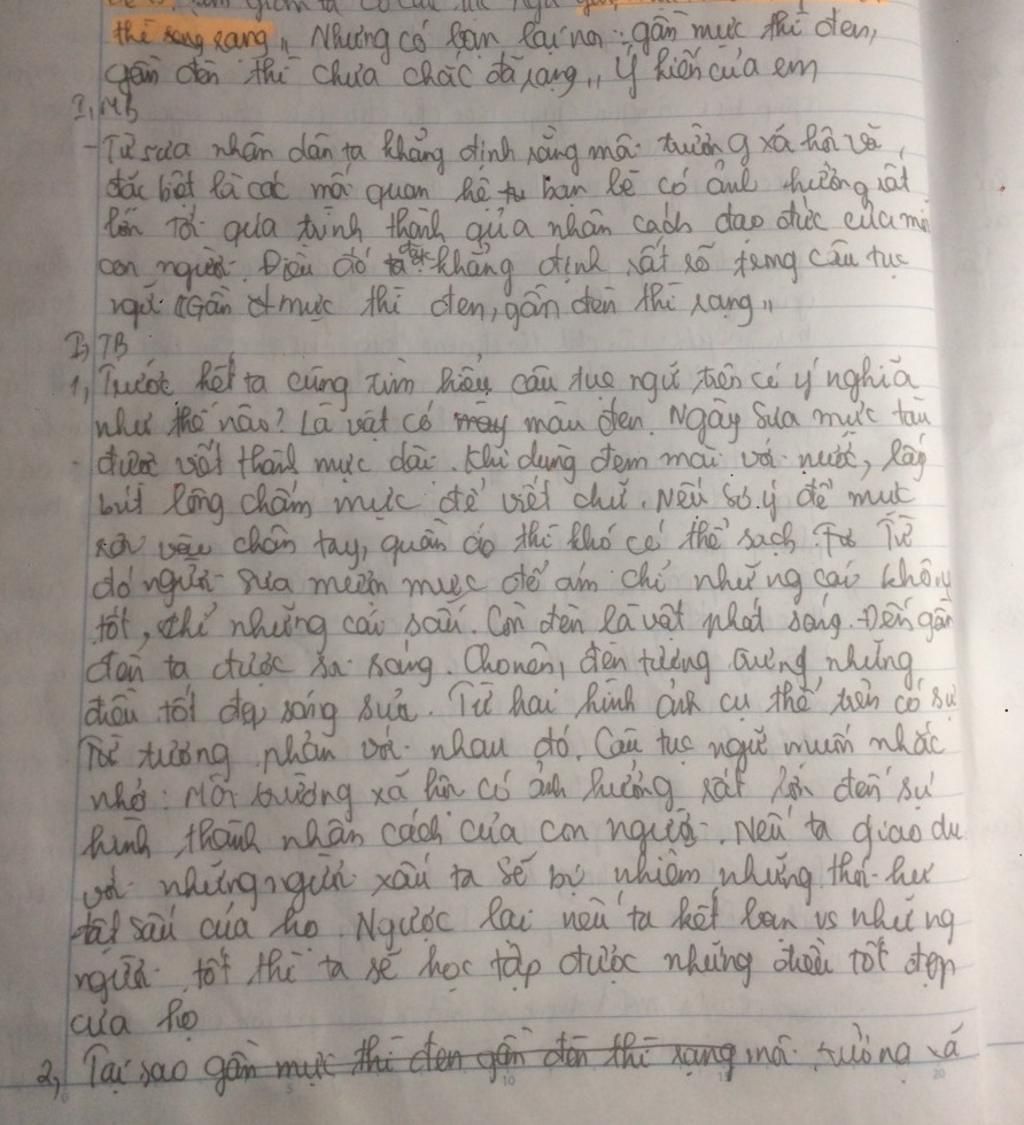 thì sạng rạng,, Nhưng có bạn lại nói: gần mực thì đen,
gần đèn thì chưa chắc đã rạng,, Ý kiến của em
I, MB
- Từ sưa nhân dân ta khẳng định rằng môi trường xã hội và,
đặc biệt là các mối quan hệ bạn bè có ảnh hưởng rất
lớn tới qúa trình thành qủa nhân cách đạo đức của mỗi
con người. Điều đó được khẳng định rất rõ trong câu tục
ngữ "Gần mực thì đen, gần đèn thì rạng,,
I, TB
1, Trước hết ta cùng tìm hiểu câu tục ngữ trên có ý nghĩa
như thế nào? Là vật có màu đen. Ngày sưa mực tàu
được viết thành mực dài. Khi dùng đem mài với nước, lấy
bút lông chấm mực để viết chữ. Nếu sơ ý để mực
rơi vào chân tay, quần áo thì khó có thể sạch. Từ
đó người sưa mượn mực để ám chỉ những cái không
tốt, chỉ những cái sấu. Còn đèn là vật phát sáng. Đến gần
đèn ta được sa sáng. Cho nên, đèn tượng trưng những
điều tốt đẹp sáng sủa. Từ hai hình ảnh cụ thể trên có sự
tương phản với nhau đó. Câu tục ngữ muốn nhắc
nhở: Môi trường xã hội có ảnh hưởng rất lớn đến sự
hình thành nhân cách của con người. Nếu ta giao du
với những người xấu ta sẽ bị nhiễm những thói hư
tật sấu của họ. Ngược lại nếu ta kết bạn vs những
người tốt thì ta sẽ học tập được những điều tốt đẹp
của họ
2, Tại sao gần mực thì đen gần đèn thì rạng môi trường xã